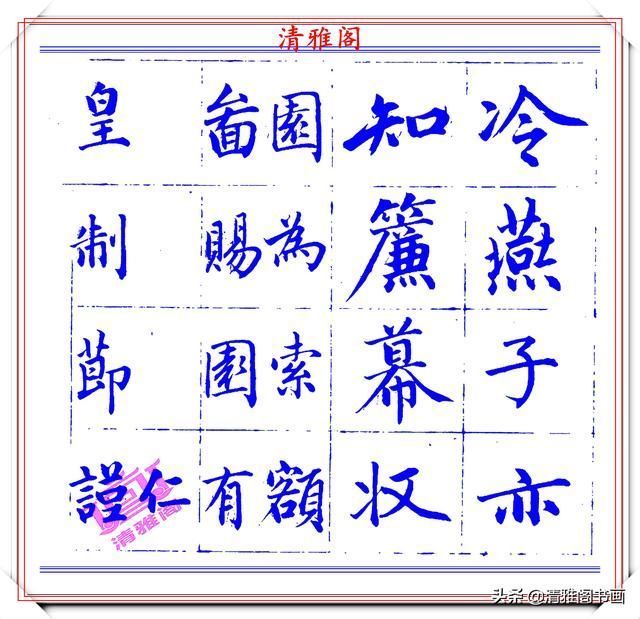 清雅阁
冷燕子亦
知簾幕収
園為索額
啚賜園有
仁
皇制莭謹
清雅阁
头条@清雅阁书画